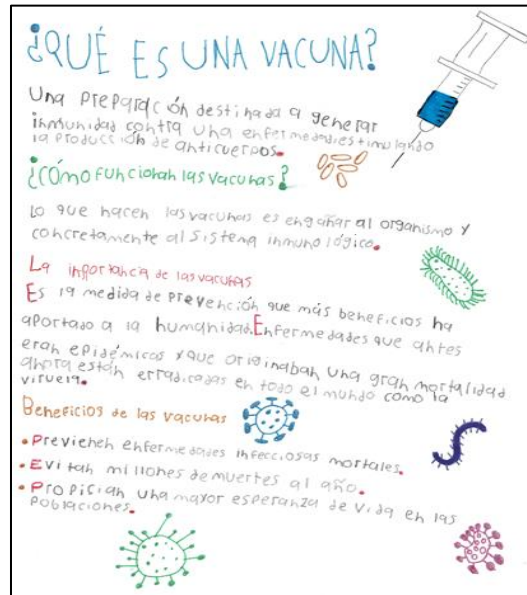 ¿QUÉ ES UNA VACUNA?
Una preparación destinada a generar
inmunidad contra una enfermedad estimulando
la producción de anticuerpos.
¿Cómo funcionan las vacunas?
Lo que hacen las vacunas es engañar al organismo y
concretamente al Sistema inmunológico.
La inportancia de las vacunas
Es la medida de prevención que más beneficios ha
aportado a la humanidad. Enfermedades que antes
eran epidémicos y que originaban una gran mortalidad
ahora están erradicadas en todo el mundo como la
viruela.
Beneficios de las vacunas
• Previenen enfermedades infecciosas mortales.
• Evitan millones de muertes al año.
• Propician una mayor esperanza de vida en las
poblaciones.